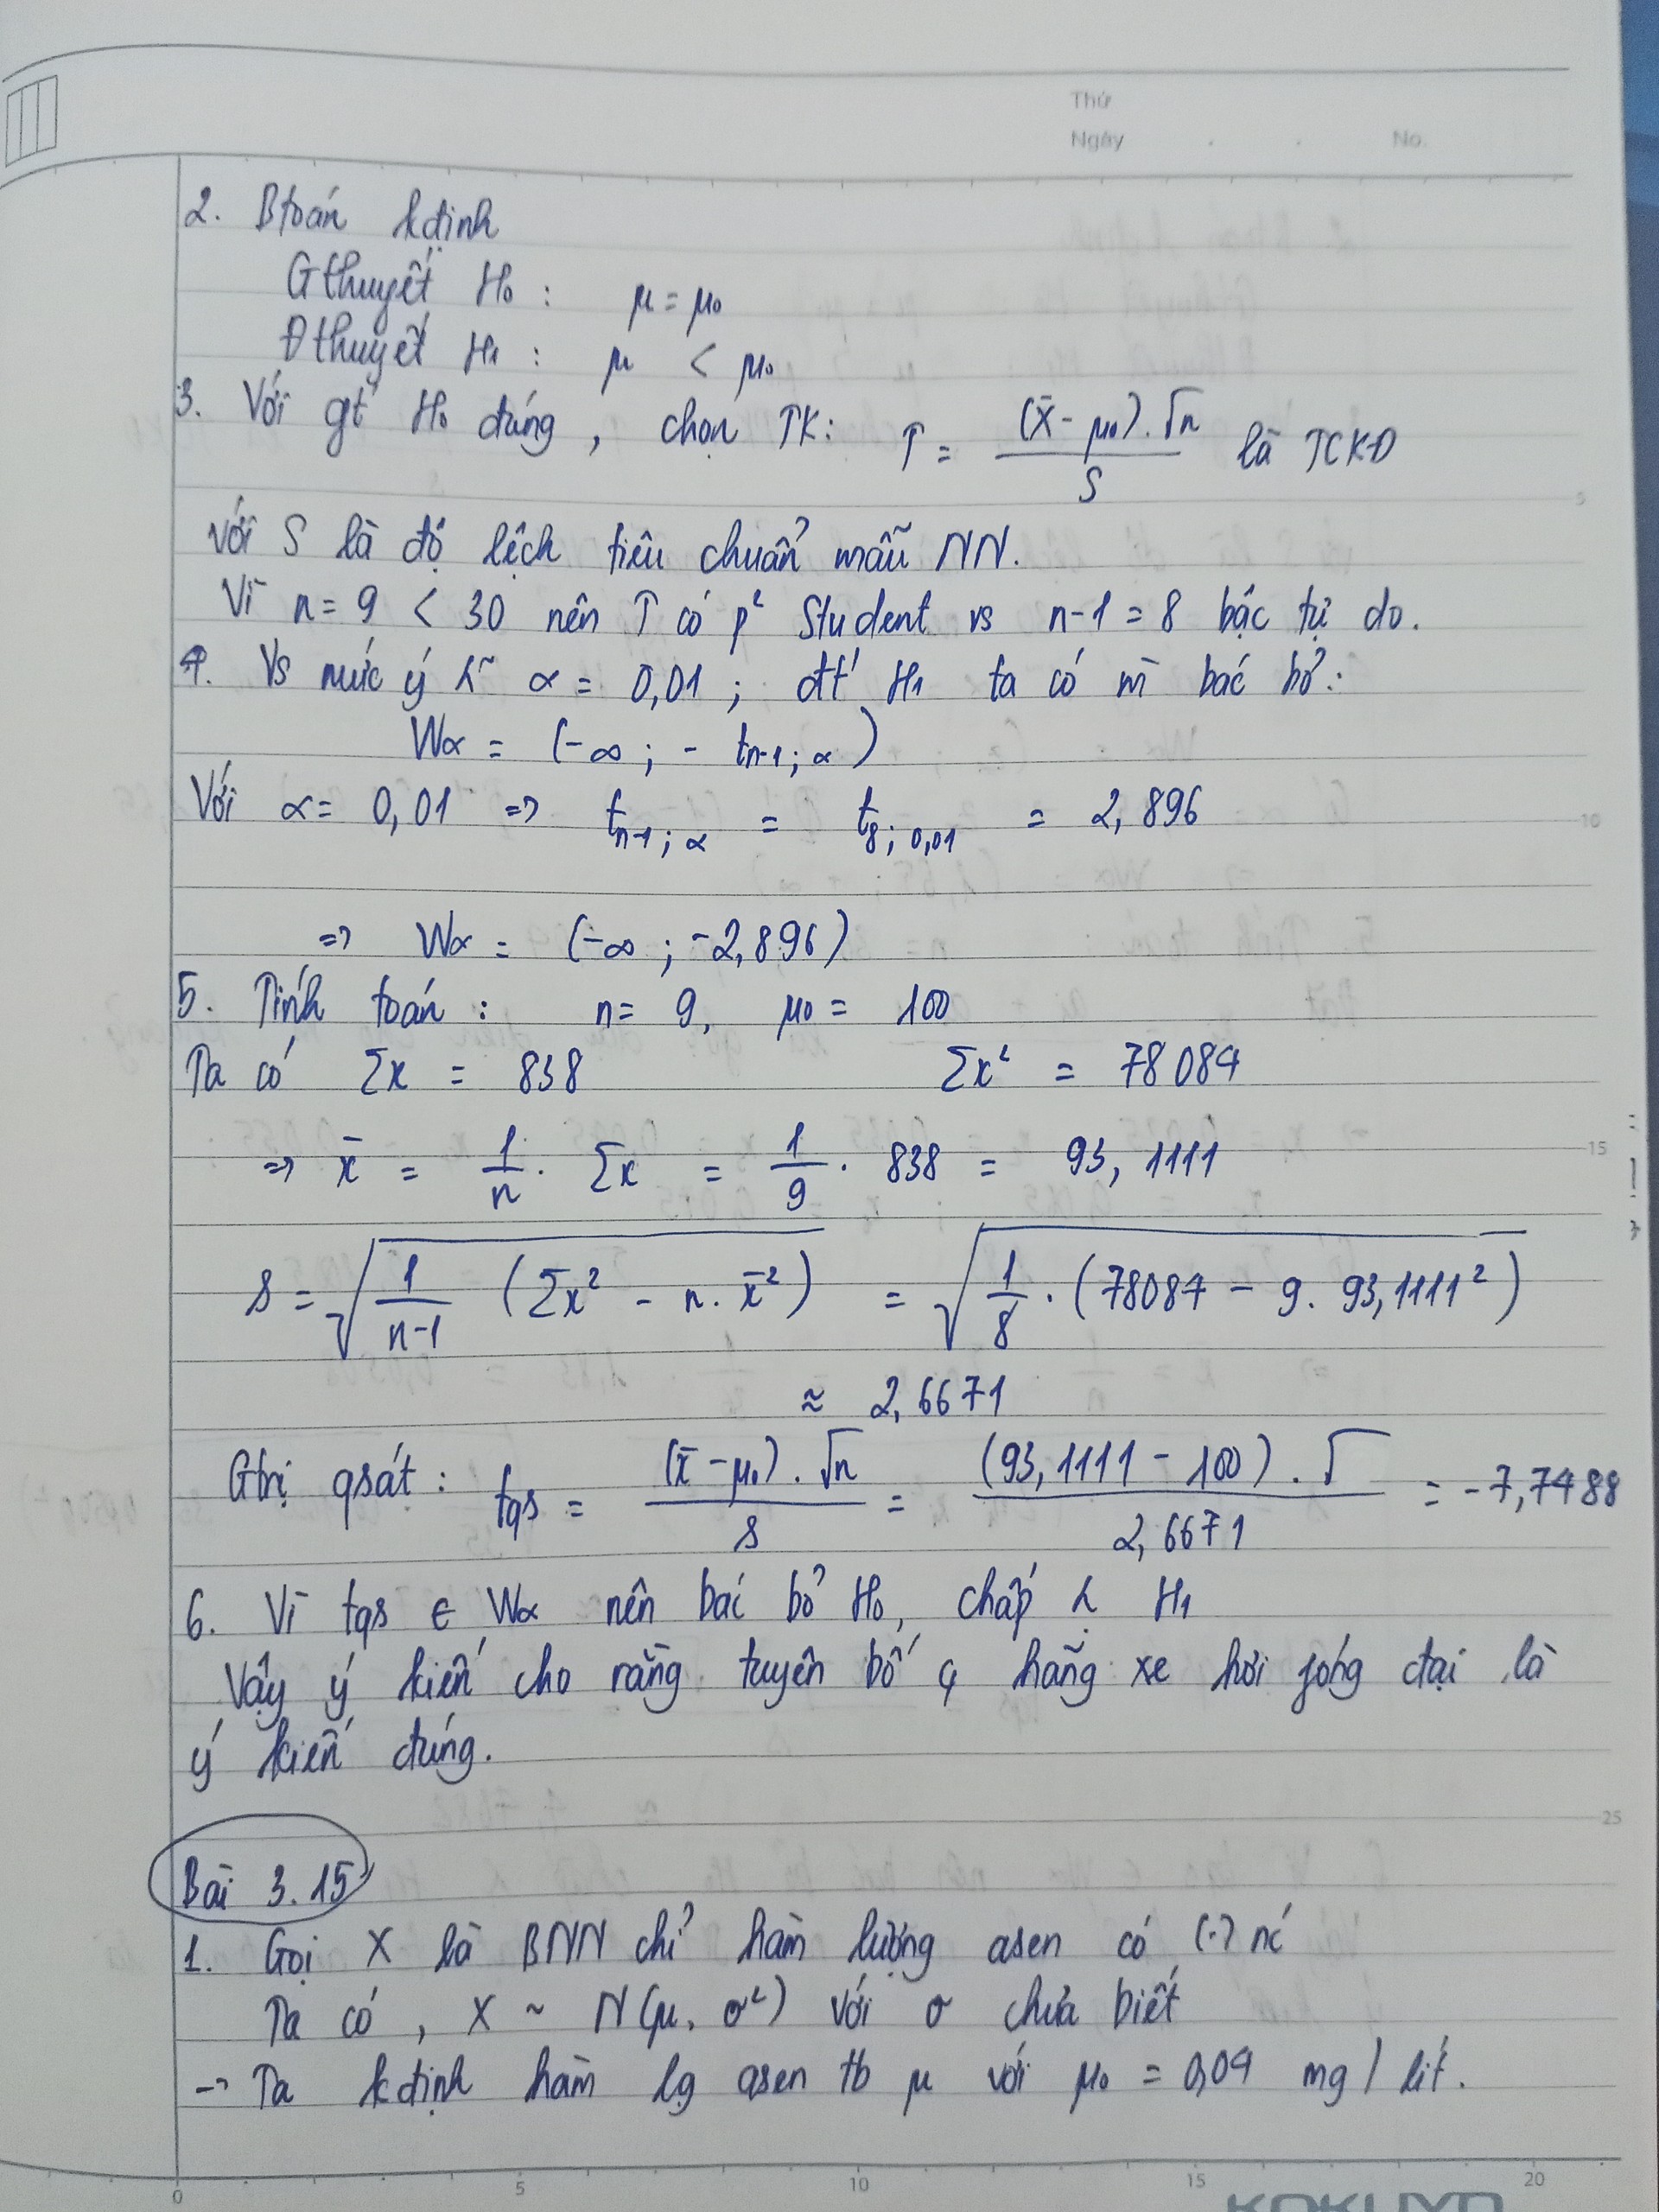 Thứ
Ngày . . No.
2. Btoán kđịnh
Gthuyết H₀ : μ = μ₀
Đthuyết H₁ : μ < μ₀
3. Với gt H₀ đúng, chọn TK: T = (X̄ - μ₀).√n / S là TCKĐ
Với S là độ lệch tiêu chuẩn mẫu NN.
Vì n = 9 < 30 nên T có p² Student vs n-1 = 8 bậc tự do.
4. Vs mức ý λ~ α = 0,01 ; đt H₁ ta có m̀ bác bỏ:
Wα = (-∞ ; - tₙ₋₁;α)
Với α = 0,01 => tₙ₋₁;α = t₈;₀,₀₁ = 2,896
=> Wα = (-∞ ; -2,896)
5. Tính toán : n = 9, μ₀ = 100
Ta có Σx = 838 Σx² = 78084
=> x̄ = 1/n . Σx = 1/9 . 838 = 93,1111
s = √(1/(n-1) (Σx² - n.x̄²)) = √(1/8 . (78087 - 9. 93,1111²))
≈ 2,6671
Gtrị qsát : tqs = (x̄ - μ₀).√n / s = (93,1111 - 100).√ / 2,6671 = -7,7488
6. Vì tqs ∈ Wα nên bác bỏ H₀, chấp λ. H₁
Vậy ý kiến cho rằng tuyên bố ç hãng xe hơi phóng đại là
ý kiến đúng.
Bài 3.15
1. Gọi X là BNN chỉ hàm lượng asen có (.) nć
Ta có, X ~ N(μ, σ²) với σ chưa biết
-> Ta kđịnh hàm lg asen tb μ với μ₀ = 0,04 mg / lít.
0 5 10 15 20
5
10
15
25
KOKUYO